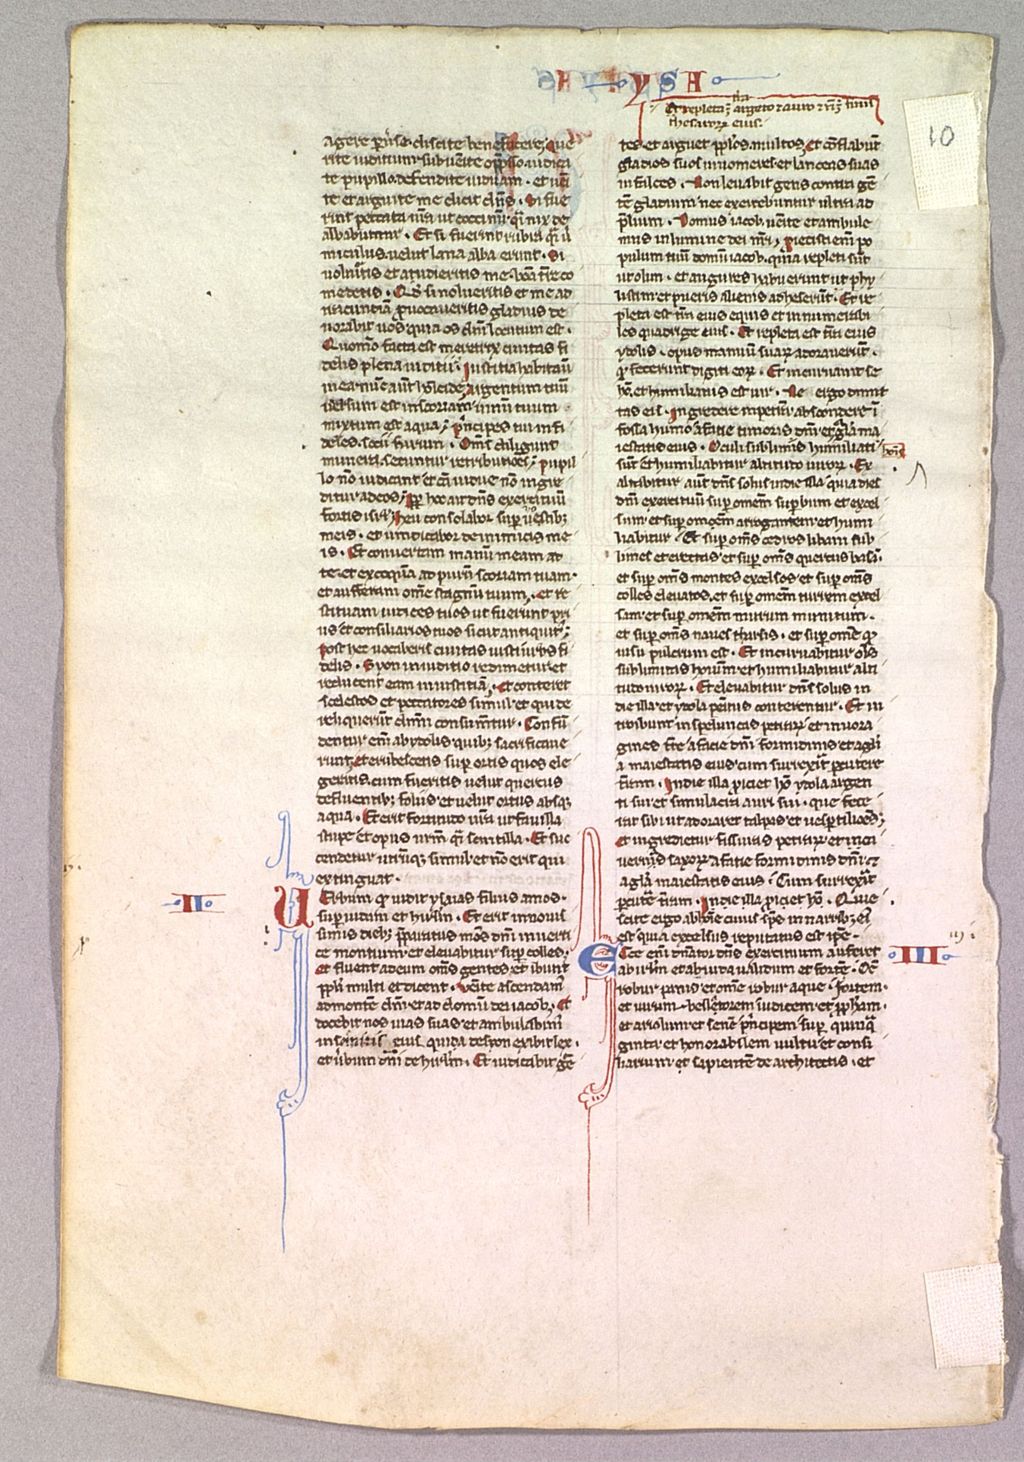 YSA
Et repleta ē t̄ra argēto ⁊ auro ⁊ nō ē finis
thesauroꝝ eius.
10
agere ꝑūse. discite benefacere; que
rite iuditium subuēite opp̄sso iudica
te pupillo defendite uiduam. et ueni
te et arguite me dicit dn̄s. Si fue
rint peccata ur̄a ut coccinū qͣi nix de
albabuntur. Et si fuerint rubra qͣi u̾
miculus. uelut lana alba erunt. Si
uolu̾itis et audieritis me. bōa t̾re co
medetis. Qd̾ si nolueritis et me ad
iracundiā ꝓuocaueritis gladius de
uorabit uos quia os dn̄i locutum est.
Quomō facta est meretrix ciuitas fi
delis plena iuditii. Iustitia habitau̾
in ea. nūc aūt homicide; argentum tuū
uersum est in scoriam. uinū tuum
mixtum est aqua; p̾ncipes tui infi
deles. socii furum. Om̄s diligunt
munera. secuntur retributiōes; pupil
lo nō iudicant et cā uidue nō ingre
ditur ad eos; ꝓp̾ hoc ait dn̄s exercituū
fortis isrl̾; heu consolabor sup̾ hostibꝫ
meis. et uindicabor de inimicis me
is. Et conuertam manū meam ad
te. et excoquā ad purū scoriam tuam.
et aufferam om̄e stagnū tuum. et re
stituam iudices tuos ut fuerunt pri
us et consiliarios tuos sicut antiquit̾;
post hec uocaberis ciuitas iusti urbs fi
delis. Syon in iuditio redimetur et
reducent eam in iustitiā. et conteret
scelestos et peccatores simul et qui de
reliquerūt dn̄m consumētur. Confū
dentur eni ab ydolis quibꝫ sacrificaue
runt; et erubescetis sup̾ ortis quos ele
geritis. cum fueritis uelut quercus
defluentibꝫ foliis. et uelut ortus absqꝫ
aqua. Et erit fortitudo ur̄a ut fauilla
stupe et opus ur̄m qͣi scintilla. Et suc
cendetur utrūqꝫ simul. et nō erit qui
extinguat.
II
Uerbum qd̾ uidit ysaias filius amos.
sup̾ iudam et hir̄lm. Et erit in noui
simis diebꝫ p̄paratus mōs dn̄i in uerti
ce montium. et eleuabitur sup̾ colles;
et fluent ad eum om̄s gentes. et ibunt
pp̄li multi et dicent. Venite ascendam̾
ad montē dn̄i. et ad domū dei iacob. et
docebit nos uias suas et ambulabim̾
in semitis eius. quia de syon exibit lex.
et u̾bum dn̄i de hir̄lm. Et iudicabit gē
tes. et arguet pp̄los multos; et cōflabunt
gladios suos in uomeres. et lanceas suas
in falces. Non leuabit gens contra gē
tē gladium nec exercebuntur ultra ad
p̄lium. Domus iacob. uēite et ambule
mus in lumine dei nr̄i; ꝓiecisti eni po
pulum tuū domū iacob. quia repleti sūt
ut olim. et augures habuerunt ut phy
listiim et pueris alienis adheserūt. Et re
pleta est t̾ra eius equis et innumerabi
les quadrige eius. Et repleta est t̾ra eius
ydolis. opus manuū suaꝝ adorauerūt.
qd̾ fecerunt digiti eoꝝ. Et incuruauit se
hō. et humiliatus est uir. Ne ergo dimit
tas eis. Ingredere in petrā abscondere ī
fossa humo a facie timoris dn̄i et a gl̄ia ma
iestatis eius. Oculi sublimis humiliati
hoīs
sūt et humiliabitur altitudo uiroꝝ. Ex
altabitur aūt dn̄s solus in die illa quia dies
dn̄i exercituū sup̾ omem superbum et excel
sum. et sup̾ omem arrogantem et humi
liabitur. Et sup̾ om̄s cedros libani sub
limes et erectas et sup̾ om̄s quercus basā.
et sup̾ om̄s montes excelsos et sup̾ om̄s
colles eleuatos. et sup̾ omem turrem excel
sam. et sup̾ omem murum munitum.
et sup̾ om̄s naues tharsis. et sup̾ om̄e qd̾
uisu pulcrum est. Et incuruabitur ois
sublimitas hoiūm et humiliabitur alti
tudo uiroꝝ. Et eleuabitur dn̄s solus in
die illa. et ydola penitus conterentur. Et in
troibunt in speluncas petraꝝ et in uora
gines t̾re a facie dn̄i formidinis et a gl̄i
a maiestatis eius. cum surrexit p̾cutere
t̾ram. In die illa ꝓiciet hō ydola argen
ti sui et simulacra auri sui. que fece
rat sibi ut adoraret talpas et uesp̾tiliōes;
et ingredietur fissuras petraꝝ et in ca
uernas saxoꝝ a facie formidinis dn̄i ⁊
a gl̄ia maiestatis eius. Cum surrexit
p̾cutē t̾ram. In die illa ꝓiciet hō. Quie
scite ergo ab hōīe cuius sp̄s in naribꝫ ei̾
est quia excelsus reputatus est ipse.
III
Ecce eni dn̄ator dn̄s exercituum auferet
ab ir̄lm et ab iuda ualidum et fortē. Oē
robur panis et ome robur aque. fortem.
et uirum bellatorem iudicem et ꝓpham.
et ariolum et senē p̾ncipem sup̾ quinqͣ
ginta et honorabilem uultu et consi
liarium. et sapientē de architectis. et